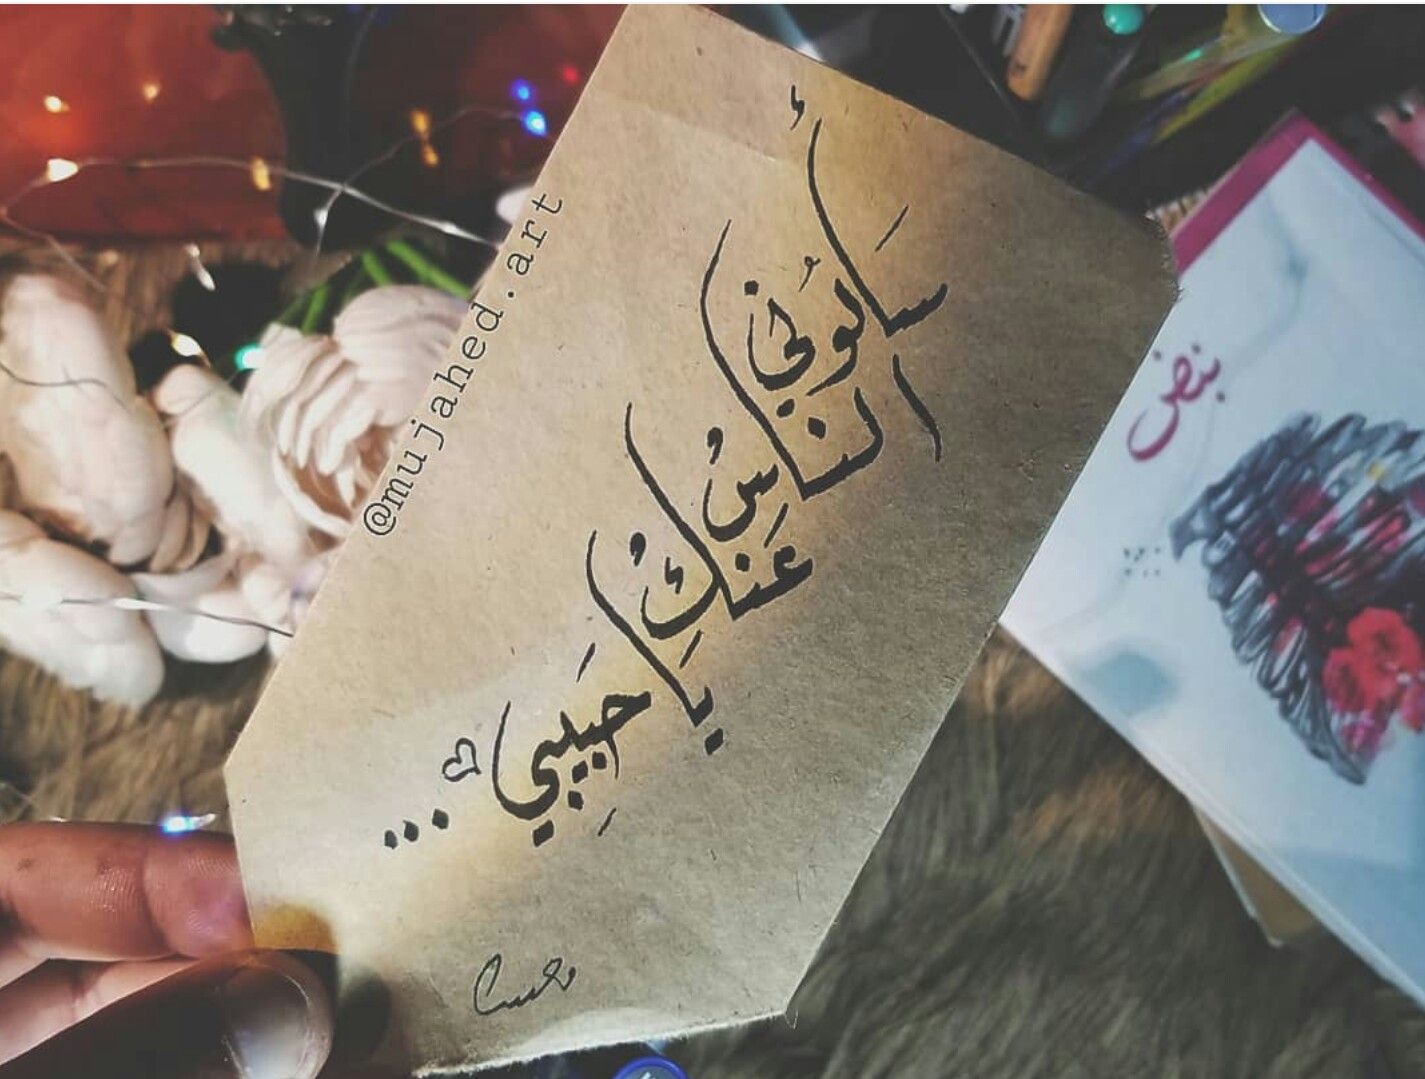 سَألوُني
الناسُ
عَنكْ
يَا
حَبَيبِي ...
@mujahed.art
بنبض